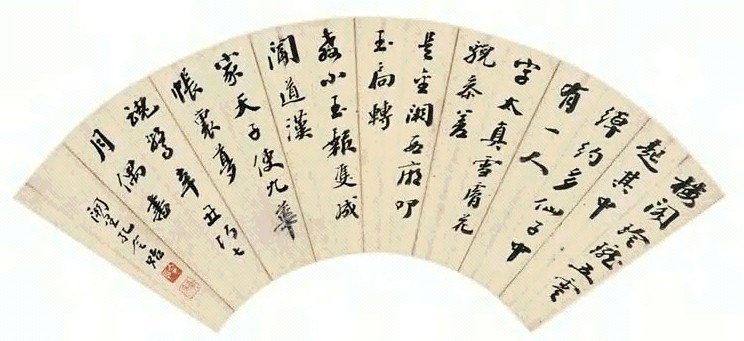 樓閣玲瓏五雲
起其中
綽約多仙子中
有一人
字太真雪膚花
貌參差
是金闕西廂叩
玉扃轉
教小玉報雙成
聞道漢
家天子使九華
帳裏夢
魂驚偶書辛丑初七
月
闕里孔令貽